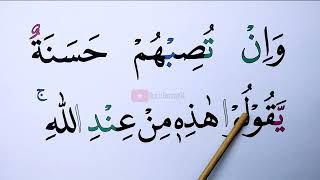 وَاِنْ تُصِبْهُمْ حَسَنَةٌ
يَّقُوْلُوْا هٰذِهٖ مِنْ عِنْدِ اللّٰهِ ۚ